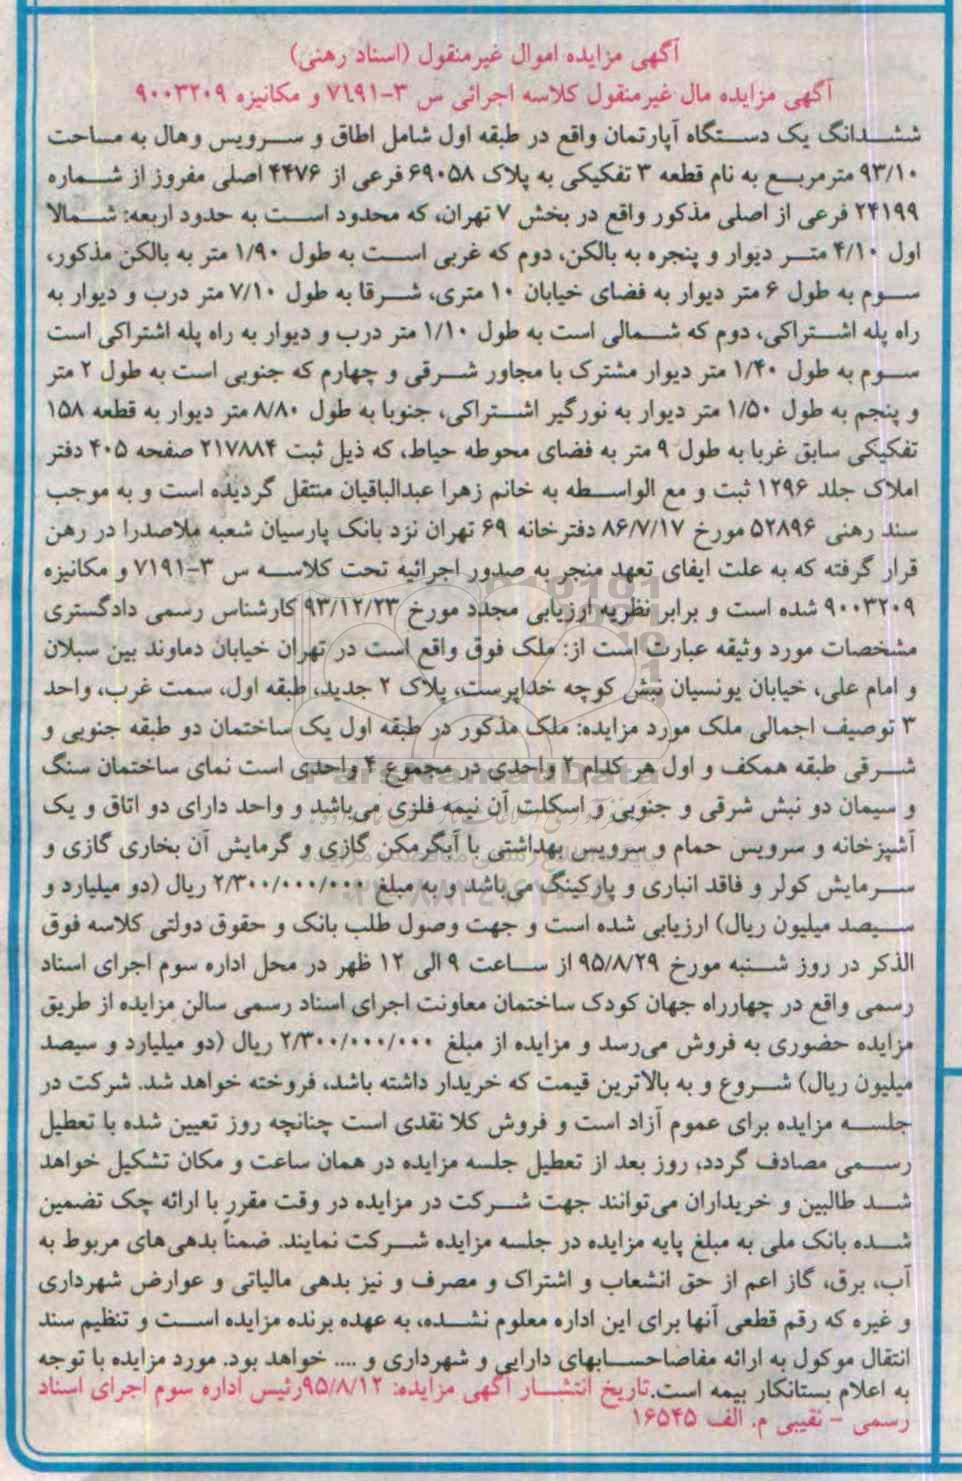 آگهی مزایده اموال غیرمنقول (اسناد رهنی)
آگهی مزایده مال غیرمنقول کلاسه اجرائی س ۳-۷۱۹۱ و مکانیزه ۹۰۰۳۲۰۹
ششدانگ یک دستگاه آپارتمان واقع در طبقه اول شامل اطاق و سرویس وهال به مساحت
۹۳/۱۰ مترمربع به نام قطعه ۳ تفکیکی به پلاک ۶۹۰۵۸ فرعی از ۴۴۷۶ اصلی مفروز از شماره
۲۴۱۹۹ فرعی از اصلی مذکور واقع در بخش ۷ تهران، که محدود است به حدود اربعه: شمالا
اول ۴/۱۰ متر دیوار و پنجره به بالکن، دوم که غربی است به طول ۱/۹۰ متر به بالکن مذکور،
سوم به طول ۶ متر دیوار به فضای خیابان ۱۰ متری، شرقا به طول ۷/۱۰ متر درب و دیوار به
راه پله اشتراکی، دوم که شمالی است به طول ۱/۱۰ متر درب و دیوار به راه پله اشتراکی است
سوم به طول ۱/۴۰ متر دیوار مشترک با مجاور شرقی و چهارم که جنوبی است به طول ۲ متر
و پنجم به طول ۱/۵۰ متر دیوار به نورگیر اشتراکی، جنوبا به طول ۸/۸۰ متر دیوار به قطعه ۱۵۸
تفکیکی سابق غربا به طول ۹ متر به فضای محوطه حیاط، که ذیل ثبت ۲۱۷۸۸۴ صفحه ۴۰۵ دفتر
املاک جلد ۱۲۹۶ ثبت و مع الواسطه به خانم زهرا عبدالباقیان منتقل گردیده است و به موجب
سند رهنی ۵۲۸۹۶ مورخ ۸۶/۷/۱۷ دفترخانه ۶۹ تهران نزد بانک پارسیان شعبه ملاصدرا در رهن
قرار گرفته که به علت ایفای تعهد منجر به صدور اجرائیه تحت کلاسه س ۳-۷۱۹۱ و مکانیزه
۹۰۰۳۲۰۹ شده است و برابر نظریه ارزیابی مجدد مورخ ۹۳/۱۲/۲۳ کارشناس رسمی دادگستری
مشخصات مورد وثیقه عبارت است از: ملک فوق واقع است در تهران خیابان دماوند بین سبلان
و امام علی، خیابان یونسیان نبش کوچه خداپرست، پلاک ۲ جدید، طبقه اول، سمت غرب، واحد
۳ توصیف اجمالی ملک مورد مزایده: ملک مذکور در طبقه اول یک ساختمان دو طبقه جنوبی و
شرقی طبقه همکف و اول هر کدام ۲ واحدی در مجموع ۴ واحدی است نمای ساختمان سنگ
و سیمان دو نبش شرقی و جنوبی و اسکلت آن نیمه فلزی می‌باشد و واحد دارای دو اتاق و یک
آشپزخانه و سرویس حمام و سرویس بهداشتی با آبگرمکن گازی و گرمایش آن بخاری گازی و
سرمایش کولر و فاقد انباری و پارکینگ می‌باشد و به مبلغ ۲/۳۰۰/۰۰۰/۰۰۰ ریال (دو میلیارد و
سیصد میلیون ریال) ارزیابی شده است و جهت وصول طلب بانک و حقوق دولتی کلاسه فوق
الذکر در روز شنبه مورخ ۹۵/۸/۲۹ از ساعت ۹ الی ۱۲ ظهر در محل اداره سوم اجرای اسناد
رسمی واقع در چهارراه جهان کودک ساختمان معاونت اجرای اسناد رسمی سالن مزایده از طریق
مزایده حضوری به فروش می‌رسد و مزایده از مبلغ ۲/۳۰۰/۰۰۰/۰۰۰ ریال (دو میلیارد و سیصد
میلیون ریال) شروع و به بالاترین قیمت که خریدار داشته باشد، فروخته خواهد شد. شرکت در
جلسه مزایده برای عموم آزاد است و فروش کلا نقدی است چنانچه روز تعیین شده با تعطیل
رسمی مصادف گردد، روز بعد از تعطیل جلسه مزایده در همان ساعت و مکان تشکیل خواهد
شد طالبین و خریداران می‌توانند جهت شرکت در مزایده در وقت مقرر با ارائه چک تضمین
شده بانک ملی به مبلغ پایه مزایده در جلسه مزایده شرکت نمایند. ضمناً بدهی‌های مربوط به
آب، برق، گاز اعم از حق انشعاب و اشتراک و مصرف و نیز بدهی مالیاتی و عوارض شهرداری
و غیره که رقم قطعی آنها برای این اداره معلوم نشده، به عهده برنده مزایده است و تنظیم سند
انتقال موکول به ارائه مفاصاحسابهای دارایی و شهرداری و .... خواهد بود. مورد مزایده با توجه
به اعلام بستانکار بیمه است. تاریخ انتشار آگهی مزایده: ۹۵/۸/۱۲ رئیس اداره سوم اجرای اسناد
رسمی - نقیبی م. الف ۱۶۵۴۵